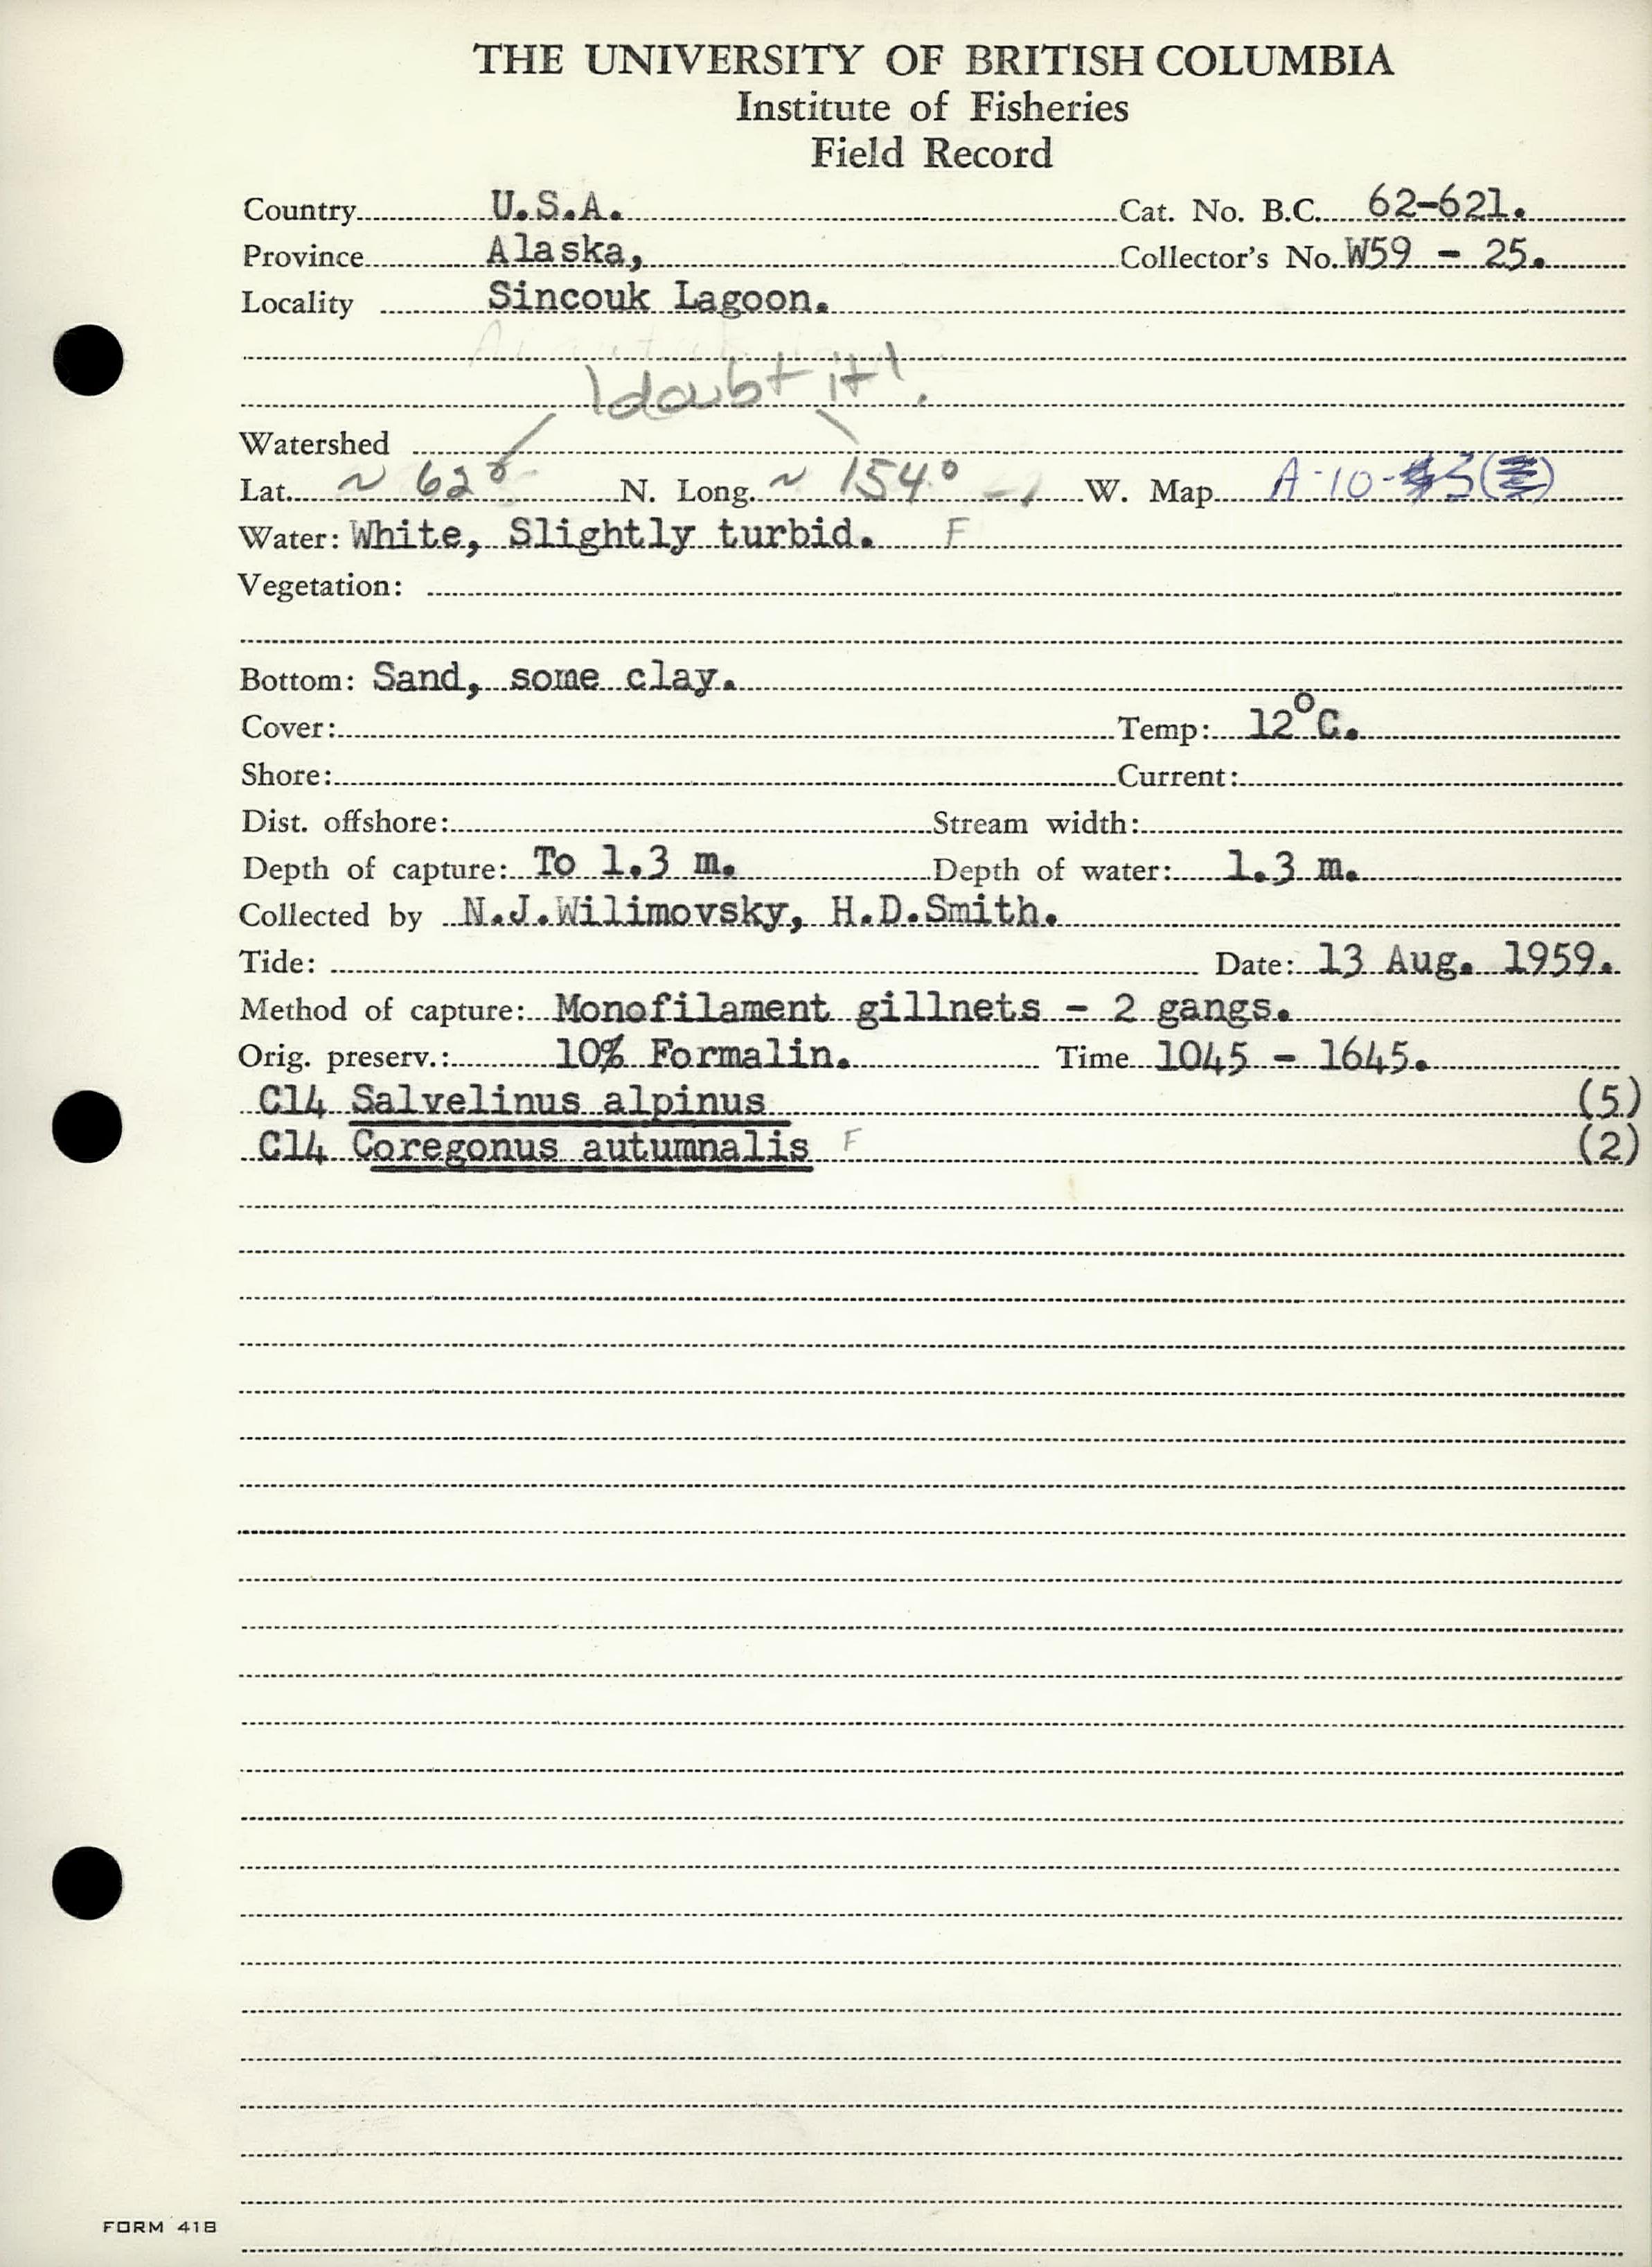 THE UNIVERSITY OF BRITISH COLUMBIA
Institute of Fisheries
Field Record
Country U.S.A. Cat. No. B.C. 62-621.
Province Alaska, Collector's No. W59 - 25.
Locality Sincouk Lagoon.
I doubt it!
Watershed
Lat. ~ 62° N. Long. ~ 154° W. Map A-10-3
Water: White, Slightly turbid. F
Vegetation:
Bottom: Sand, some clay.
Cover: Temp: 12°C.
Shore: Current:
Dist. offshore: Stream width:
Depth of capture: To 1.3 m. Depth of water: 1.3 m.
Collected by N.J.Wilimovsky, H.D.Smith.
Tide: Date: 13 Aug. 1959.
Method of capture: Monofilament gillnets - 2 gangs.
Orig. preserv.: 10% Formalin. Time 1045 - 1645.
C14 Salvelinus alpinus (5)
C14 Coregonus autumnalis F (2)
FORM 41B